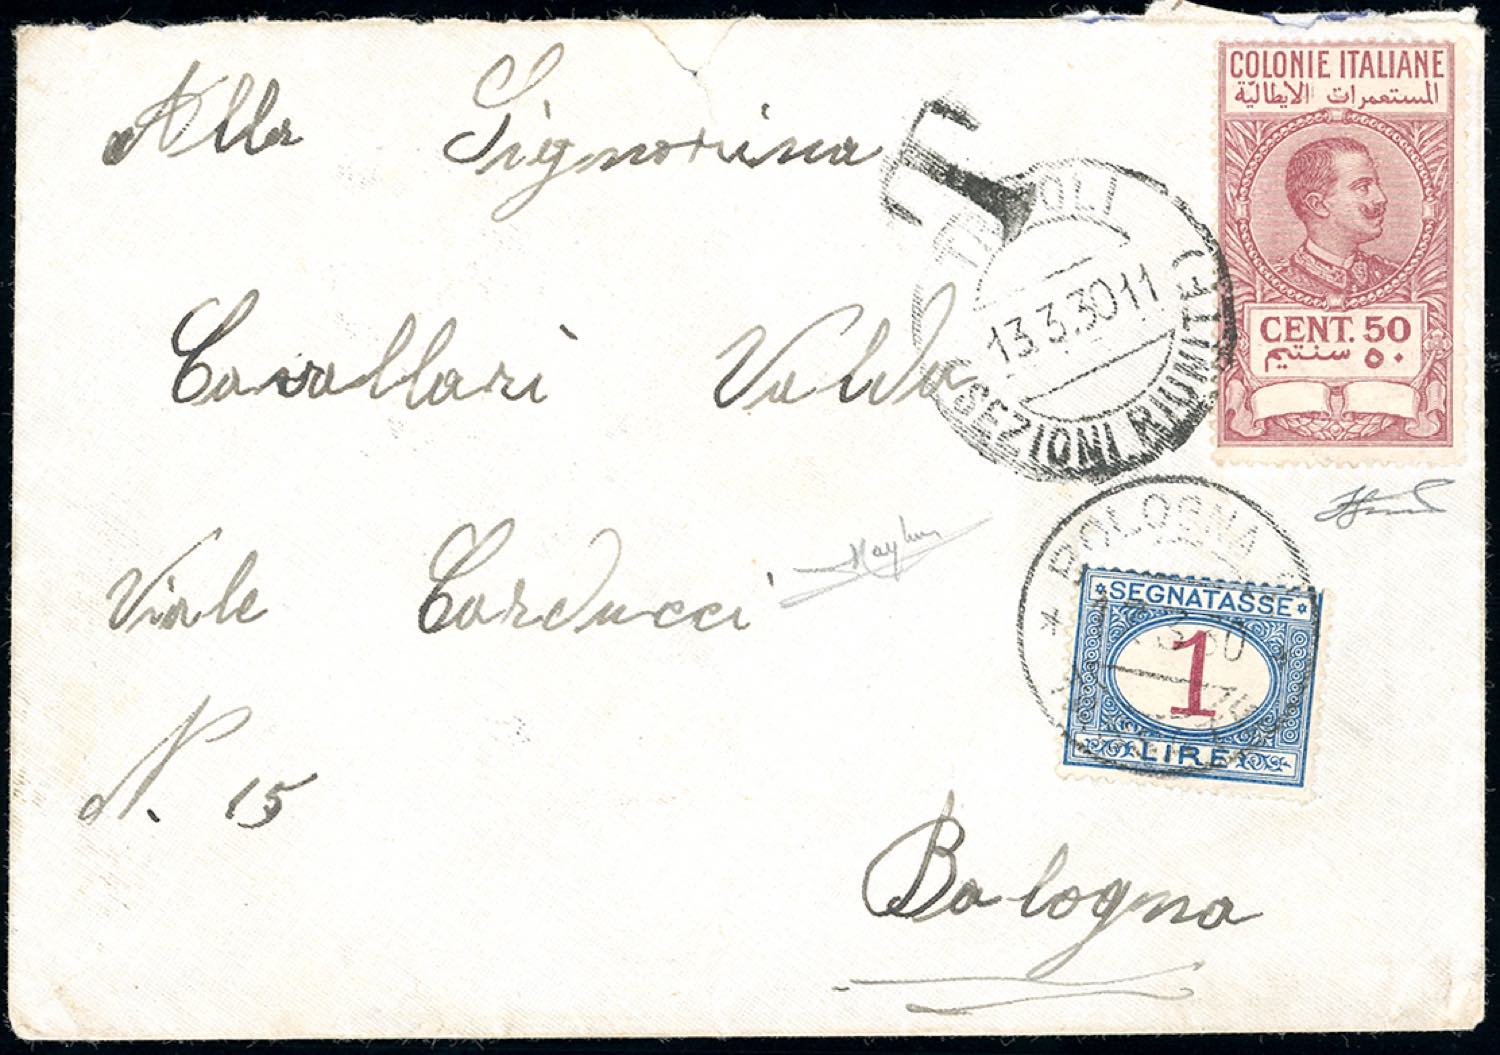 Alla Signorina
Cavallari Valda
Viale Carducci
N. 15
Bologna
T
TRIPOLI
13.3.30 11
(SEZIONI RIUNITE)
COLONIE ITALIANE
المستعمرات الايطالية
CENT. 50
٥٠ سنتيم
BOLOGNA
3 30
SEGNATASSE
1
LIRE